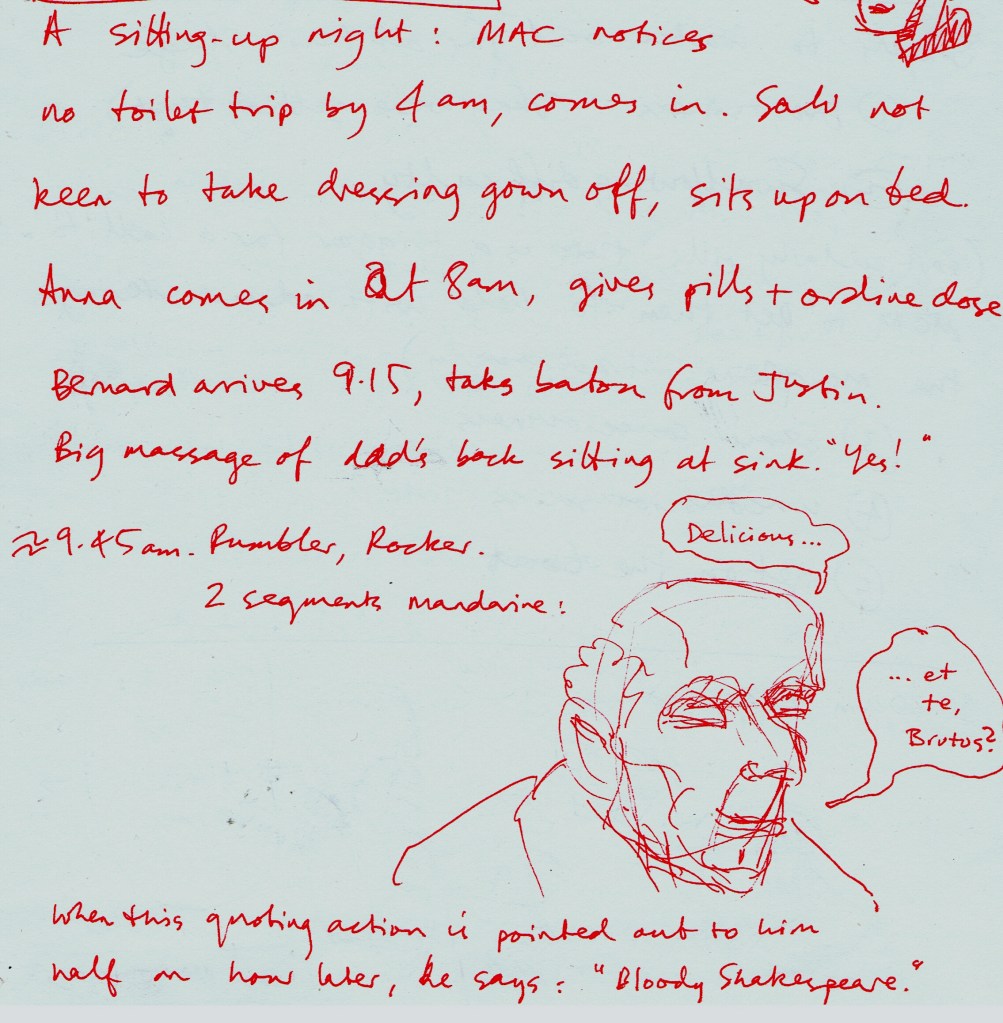 A sitting-up night: MAC notices
no toilet trip by 4am, comes in. Salv not
keen to take dressing gown off, sits up on bed.
Anna comes in at 8am, gives pills + ordine dose
Bernard arrives 9.15, takes baton from Justin.
Big massage of dad's back sitting at sink. "Yes!"
≈ 9.45am. Rumbler, Rocker.
2 segments mandarine:
Delicious...
... et
te,
Brutus?
When this quoting action is pointed out to him
half an hour later, he says: "Bloody Shakespeare."